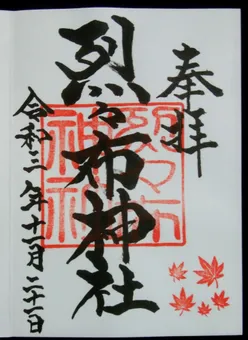 奉拝
烈々布神社
令和三年十一月二十一日
烈々布神社